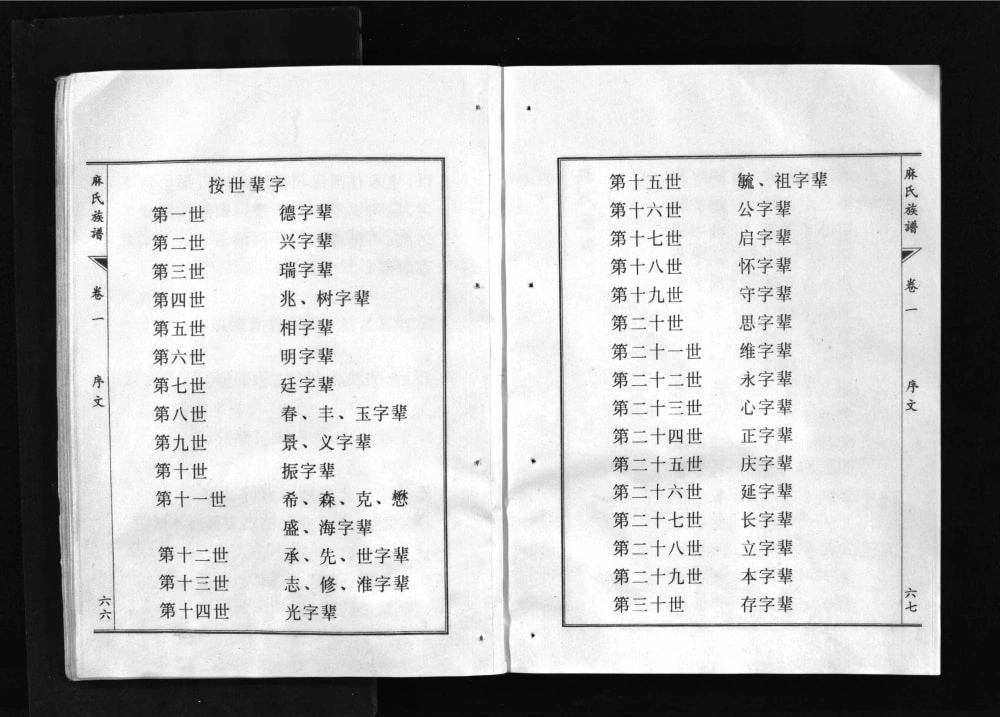 麻氏族譜
卷一
序文
六六
按世辈字
第一世 德字辈
第二世 兴字辈
第三世 瑞字辈
第四世 兆、树字辈
第五世 相字辈
第六世 明字辈
第七世 廷字辈
第八世 春、丰、玉字辈
第九世 景、义字辈
第十世 振字辈
第十一世 希、森、克、懋
盛、海字辈
第十二世 承、先、世字辈
第十三世 志、修、淮字辈
第十四世 光字辈
第十五世 毓、祖字辈
第十六世 公字辈
第十七世 启字辈
第十八世 怀字辈
第十九世 守字辈
第二十世 思字辈
第二十一世 维字辈
第二十二世 永字辈
第二十三世 心字辈
第二十四世 正字辈
第二十五世 庆字辈
第二十六世 延字辈
第二十七世 长字辈
第二十八世 立字辈
第二十九世 本字辈
第三十世 存字辈
麻氏族譜
卷一
序文
六七